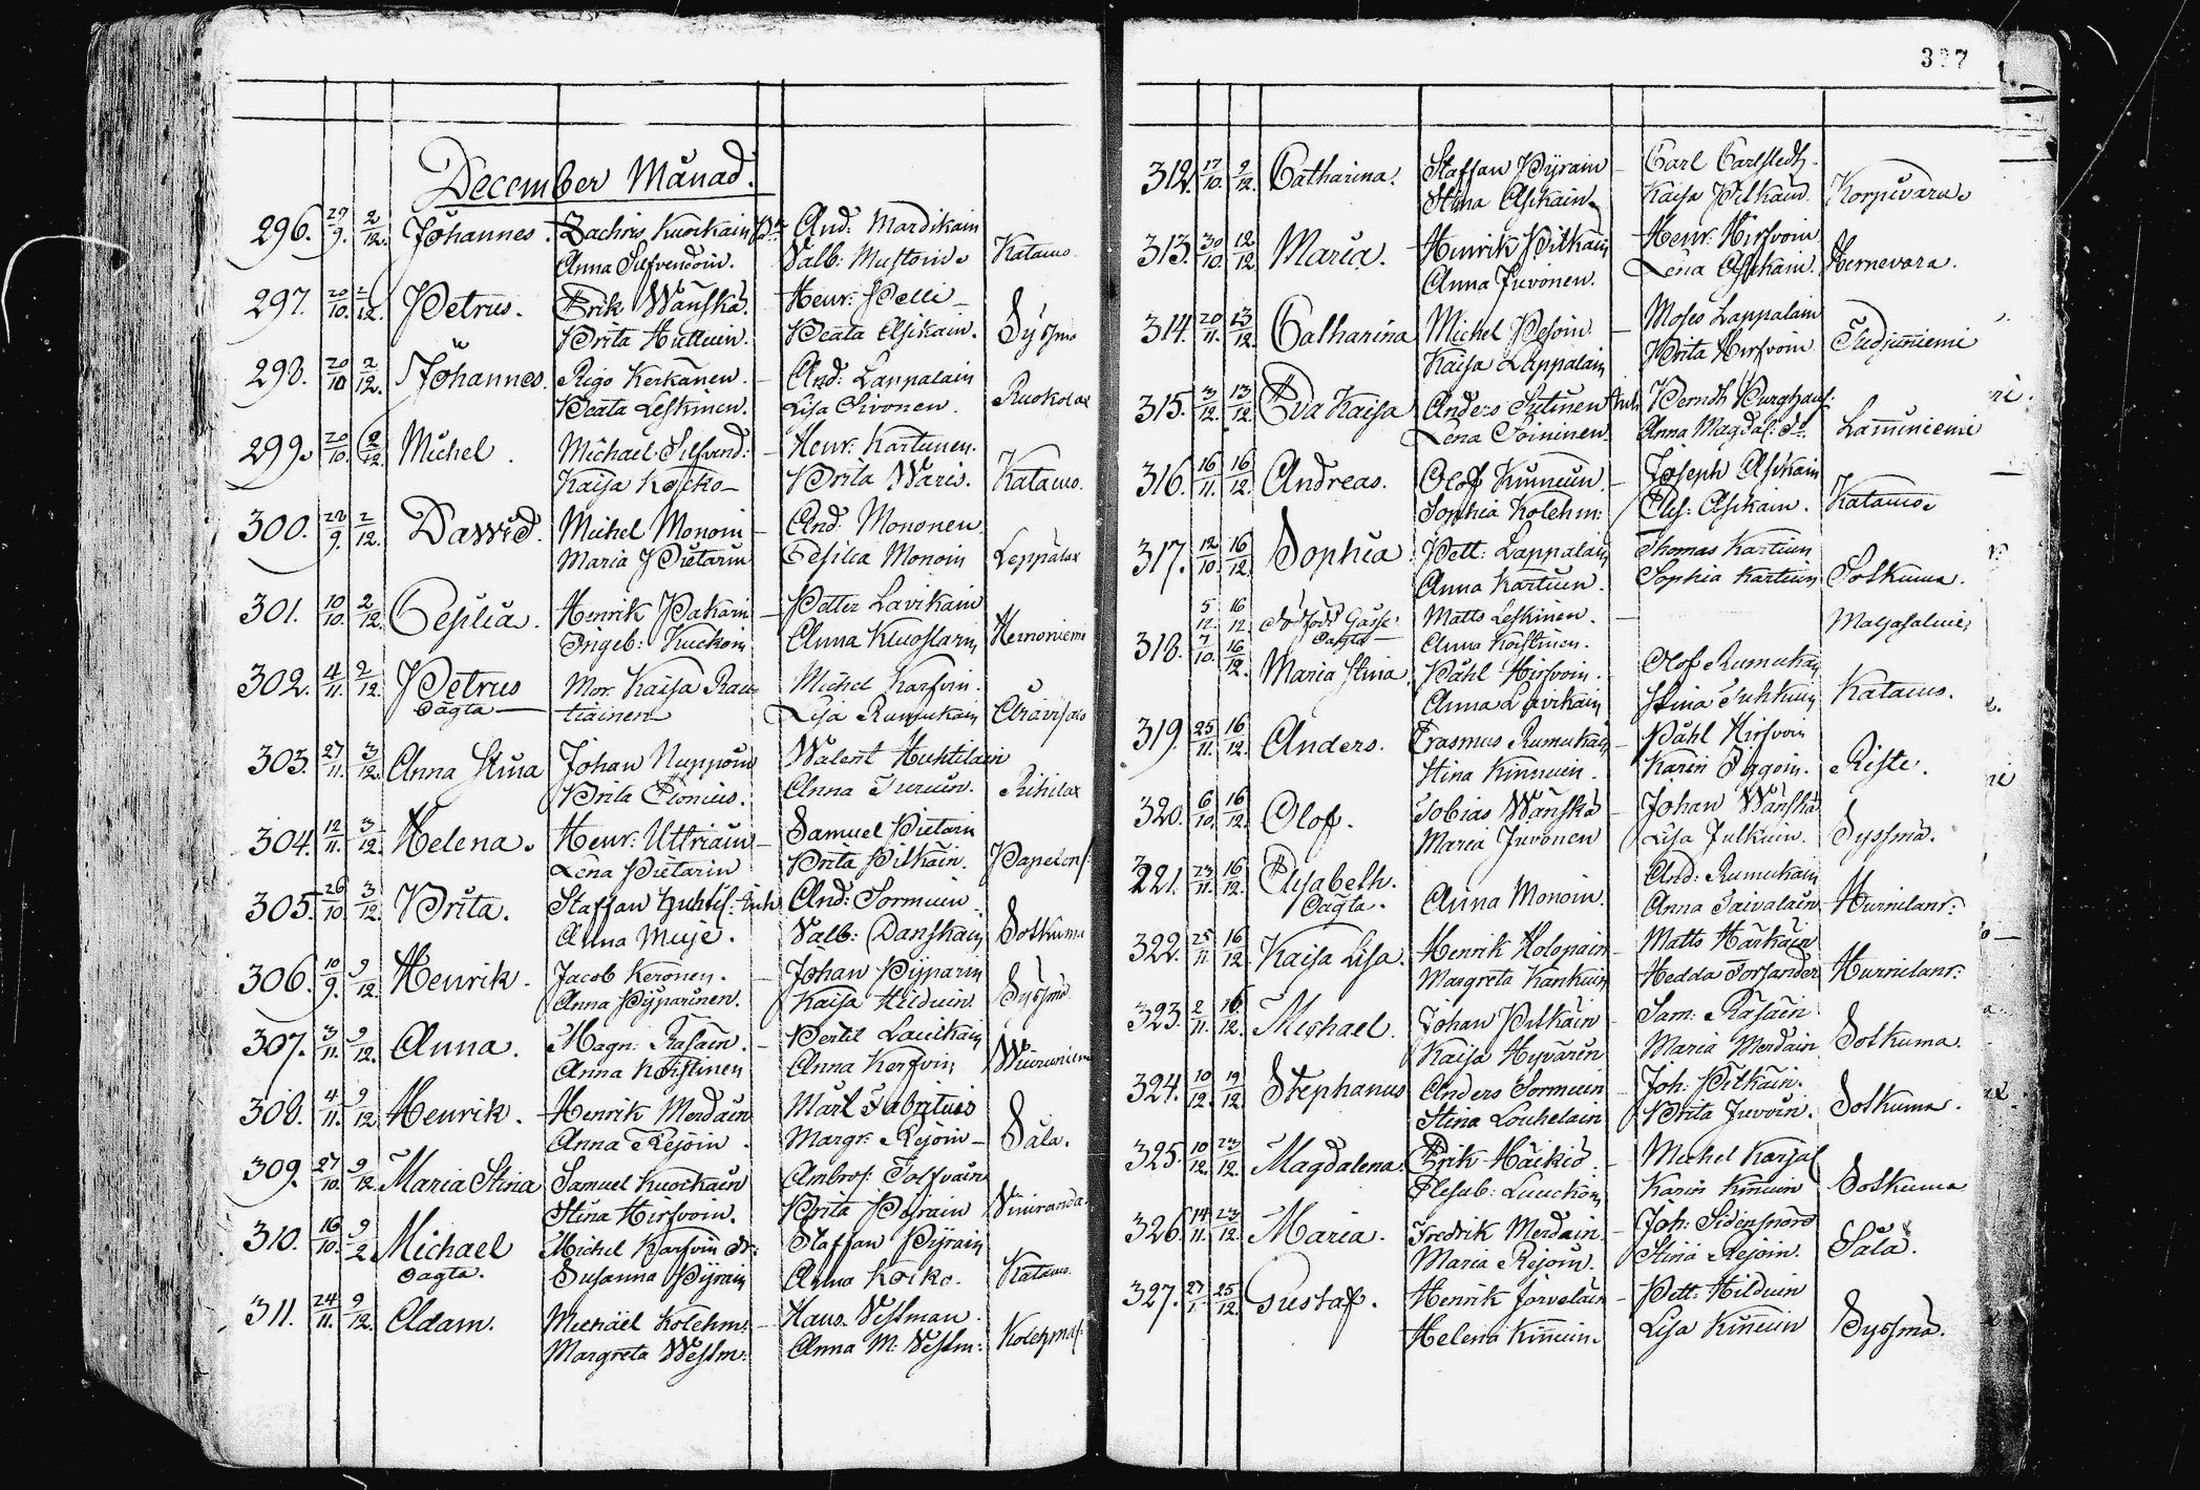 337
December Månad.
296. 29/9. 2/12. Johannes. Zachris Kuorkain And: Mardikain
Anna Silfvendoin. Valb: Mustoin. Katamo.
297. 20/10. 2/12. Petrus. Erik Wänskä. Henr: Pelli
Brita Huttuin. Beata Asikain. Sysmä
298. 20/10 2/12. Johannes. Rigo Kerkänen. And: Lappalain
Beata Leskinen. Lisa Sivonen. Ruokolax
299. 20/10. 2/12. Michel. Michael Silfvend: Henr: Kartunen.
Kaisa Kocko Brita Waris. Katamo.
300. 28/9. 2/12. Dawid. Michel Monoin And: Mononen
Maria Pietarin Cesilia Monoin Leppälax
301. 10/10. 2/12. Cesilia. Henrik Pakarin Petter Lavikain
Ingeb: Kuckoin Anna Kuoslarin Hernoniemi
302. 4/11. 2/12. Petrus Mor. Kaisa Rau- Michel Karfvin.
oägta tiainen Lisa Rumukain
303. 27/11. 3/12. Anna Stina Johan Nuppoin Walent Huhtilain
Brita Clonius. Anna Turuin. Rihilax
304. 12/11. 3/12. Helena. Henr: Uttriain Samuel Pietarin
Lena Pietarin Brita Pitkäin.
305. 26/10. 3/12. Brita. Staffan Huhtil: Enk And: Sormuin
Anna Muje. Valb: Danskain Sotkuma
306. 10/9. 9/12. Henrik. Jacob Keronen. Johan Pijparin
Anna Pijparinen. Kaisa Hilduin Sysmä
307. 3/11. 9/12. Anna. Magn: Räsäin. Bertil Lavikain
Anna Koistinen Anna Kerfvin
308. 4/11. 9/12 Henrik. Henrik Merdain Märt Fabritius
Anna Rejoin. Margr: Rejoin Sala.
309. 27/10. 9/12 Maria Stina Samuel Kuorkain Ambros: Tolfvain
Stina Hirfvoin. Brita Pesrain Viniranda
310. 16/10. 9/2 Michael Michel Karfvin Staffan Pijrain
oägta. Susanna Pijrain Anna Kocko. Katamo
311. 24/11. 9/12. Adam. Michäel Kolehm: Hans Vestman.
Margreta Westm: Anna M: Vestm: Kolehmas:
312. 17/10. 9/12. Catharina. Staffan Pijrain Carl Carlstedt.
Stina Asikain Kaisa Pitkäin. Korpivara.
313. 30/10. 12/12 Maria. Henrik Pitkäin Henr: Hirfvoin
Anna Juvonen. Lena Asikain. Hernevara.
314. 20/11. 13/12. Catharina Michel Pesoin Moses Lappalain
Kaisa Lappalain Brita Hirfvoin
315. 3/12. 13/12. Eva Kaisa Anders Sutinen Enk Berndt Burghaus:
Lena Soininen. Anna Magdal: Do. Lamminiemi
316. 16/11. 16/12. Andreas. Olof Kinnuin. Joseph Asikain
Sophia Kolehm: Elis: Asikain. Katamo.
317. 12/10. 16/12. Sophia. Pett: Lappalain Thomas Kartuin
Anna Kartuin. Sophia Kartuin Sotkuma.
5/12. 16/12 Dödföd Gosse. Matts Leskinen. Maljasalmi
318. 7/10. 16/12. oägta Anna Koistinen.
Maria Stina. Påhl Hirfvoin. Olof Rumukain
Anna Lavikain Stina Tuhkuin Katamo.
319. 25/11. 16/12. Anders. Erasmus Rumukain Påhl Hirfvoin
Stina Kinnuin. Karin Piggoin. Riste.
320. 6/10. 16/12. Olof. Tobias Wänskä Johan Wänskä
Maria Juvonen Lisa Julkuin. Sysmä.
221. 23/11. 16/12. Elisabeth. And: Rumukain
oägta. Anna Monoin. Anna Taivalain
322. 25/11 16/12 Kaisa Lisa. Henrik Holopain Matts Härkäin
Margreta Kankuin Hedda Forsander
323. 2/11. 16/12. Michael. Johan Pitkäin Sam: Räsäin
Kaisa Hyvärin Maria Merdain Sotkuma.
324. 10/12. 19/12 Stephanus Anders Sormuin Joh: Pitkäin.
Stina Louhelain Brita Juvoin. Sotkuma.
325. 10/12. 23/12. Magdalena. Erik Häikiö. Michel Karjal
Elesab: Luuckoin Karin Kinnuin Sotkuma
326. 14/11. 23/12. Maria. Fredrik Merdain. Joh: Sidensnöre
Maria Rejoin. Stina Rejoin. Sala.
327. 27/1. 25/12. Gustaf. Henrik Jorvelain Pett: Hilduin
Helena Kinnuin. Lisa Kinnuin Sysmä.